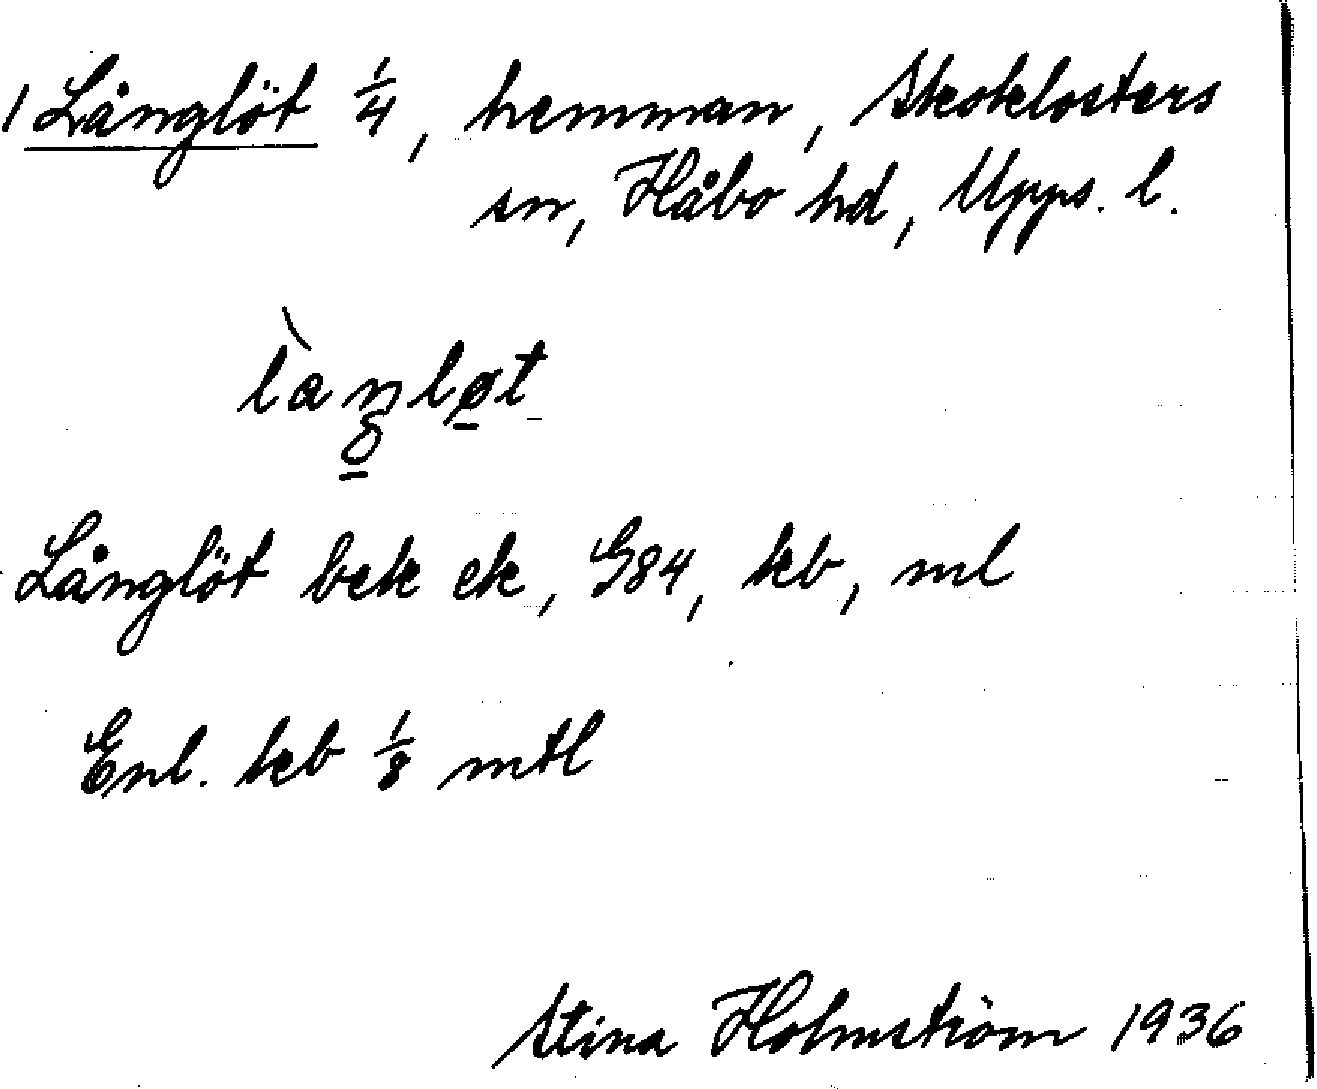 1 Långlöt 1/4, hemman, Skoklosters
sn, Håbo hd, Upps. l.
làŋløt
Långlöt bek ek, G84, kb, ml
Enl. kb 1/8 mtl
Stina Holmström 1936